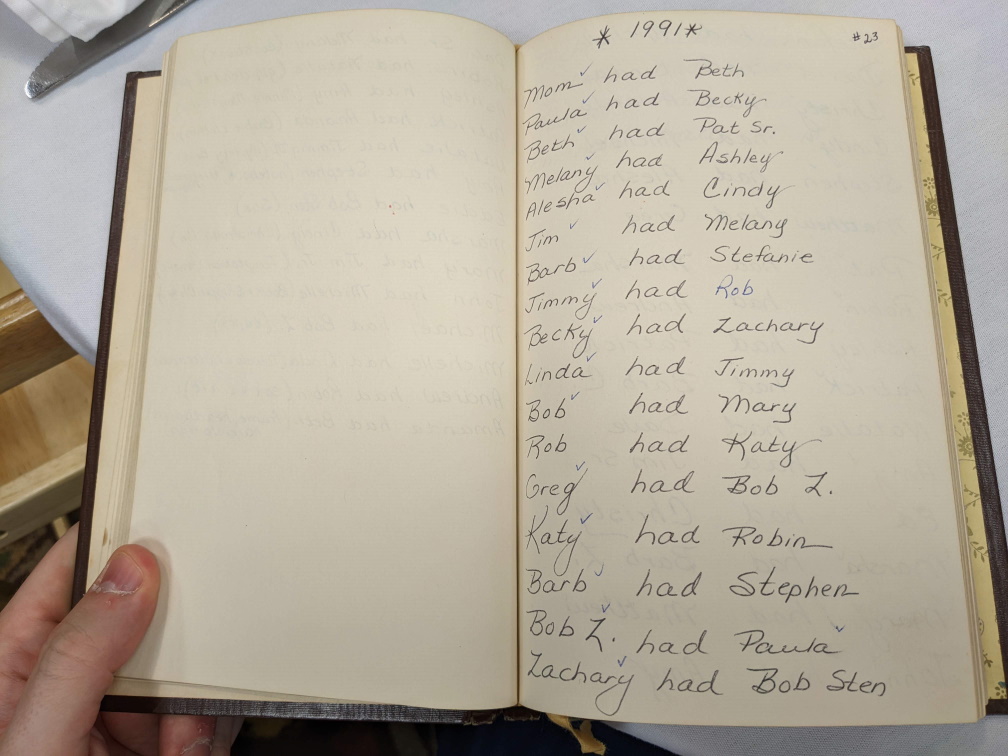 * 1991 *
#23
Mom ✓ had Beth
Paula ✓ had Becky
Beth ✓ had Pat Sr.
Melany ✓ had Ashley
Alesha ✓ had Cindy
Jim ✓ had Melany
Barb ✓ had Stefanie
Jimmy ✓ had Rob
Becky ✓ had Zachary
Linda ✓ had Jimmy
Bob ✓ had Mary
Rob had Katy
Greg ✓ had Bob Z.
Katy ✓ had Robin
Barb ✓ had Stephen
Bob Z. ✓ had Paula ✓
Zachary ✓ had Bob Sten